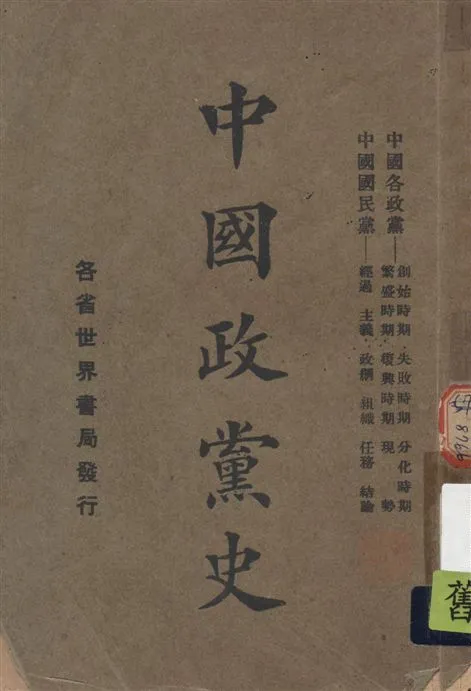 中國各政黨——創始時期 失敗時期 分化時期
繁盛時期 復興時期 現勢
中國國民黨——經過 主義 政綱 組織 任務 結論
中國政黨史
各省世界書局發行
舊